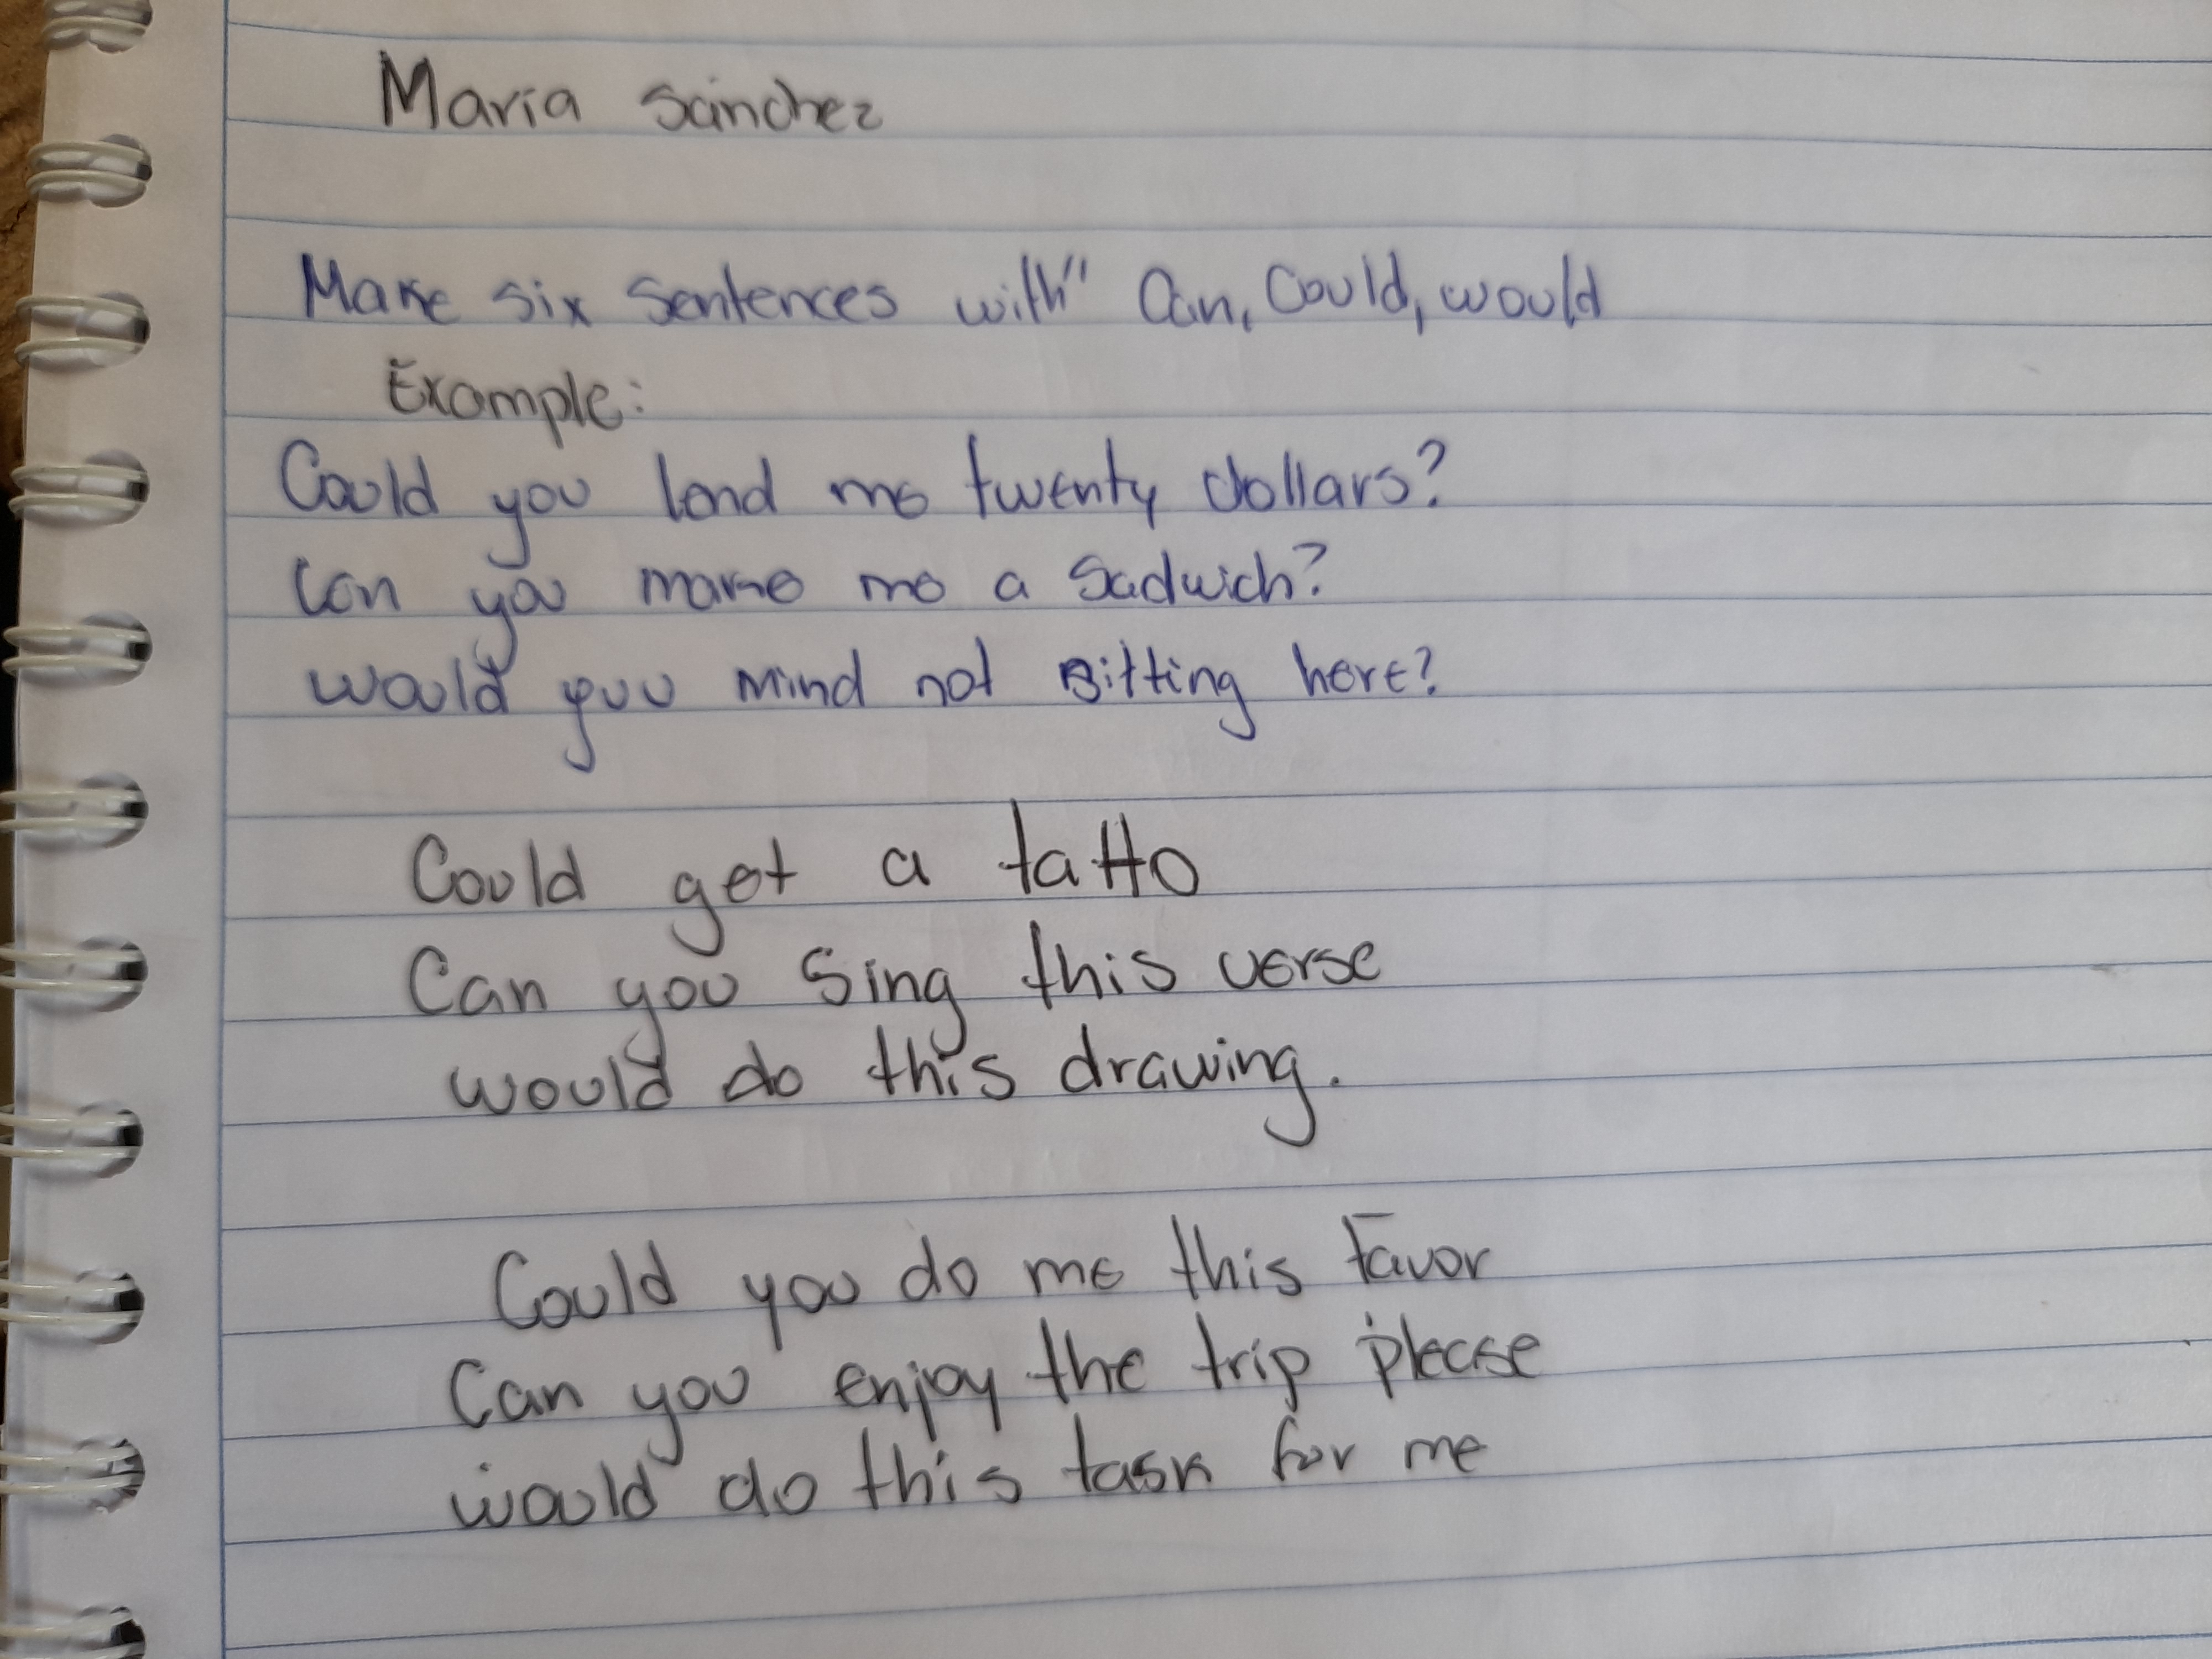 Maria Sánchez
Make six sentences with" Can, Could, would
Example:
Could you lend me twenty dollars?
Can you make me a Sadwich?
would you mind not sitting here?
Could get a tatto
Can you Sing this verse
would do this drawing.
Could you do me this Favor
Can you enjoy the trip please
would do this task for me